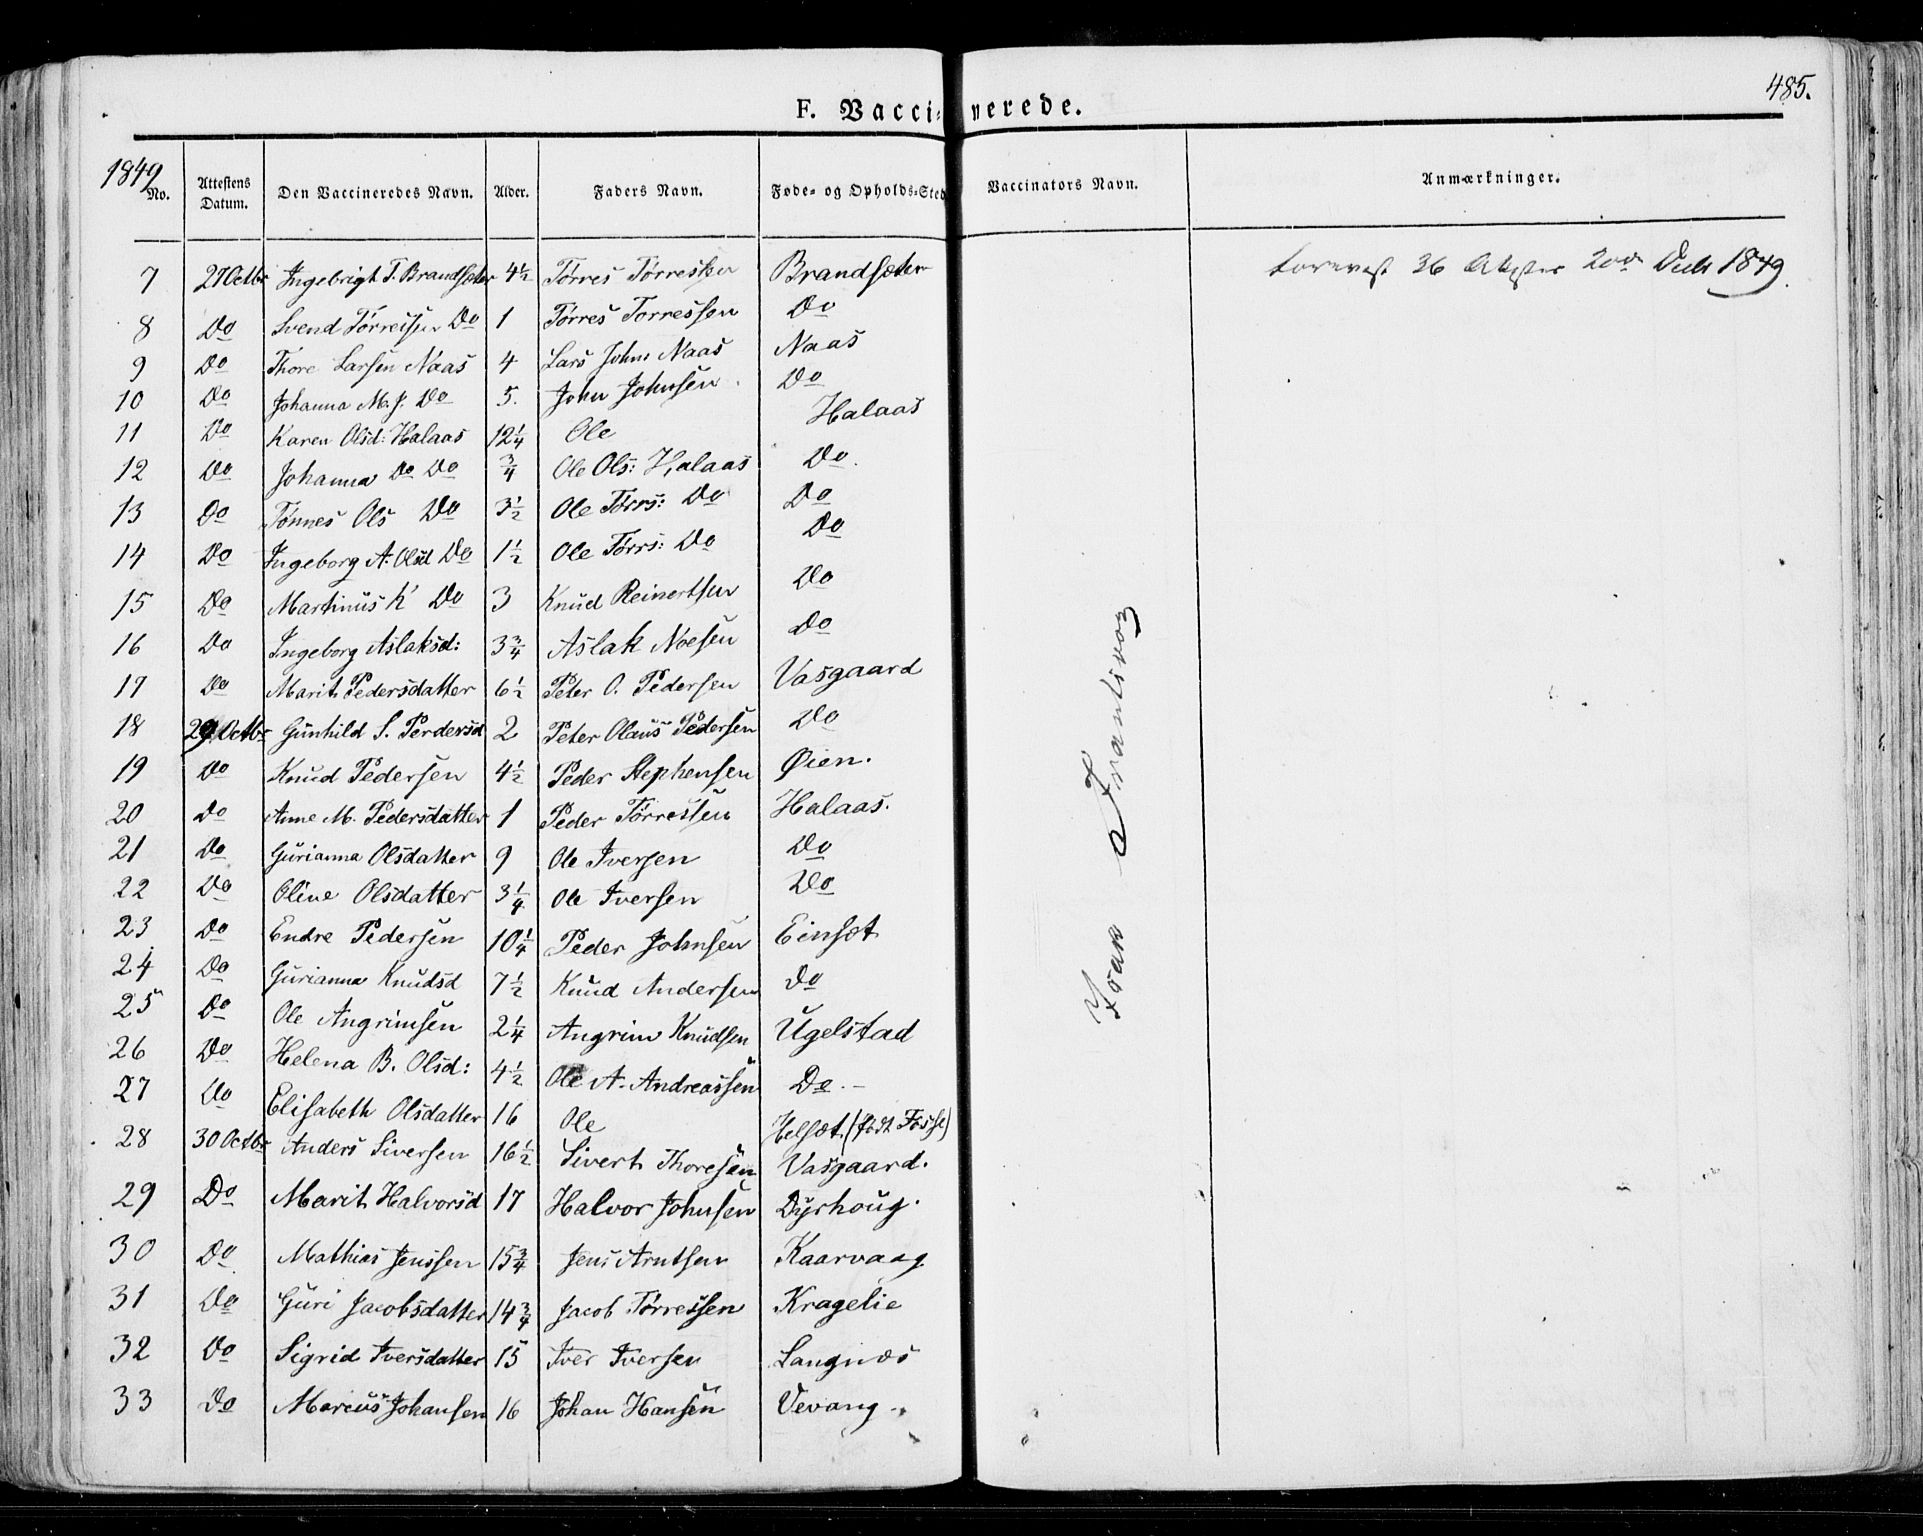 485.
F. Vaccinerede.
1849
No. Attestens Datum. Den Vaccineredes Navn. Alder. Faders Navn. Føde- og Opholds-Sted Vaccinators Navn. Anmærkninger.
7 27 Octbr Ingebrigt T. Brandsæter 4½ Tørres Tørressen Brandsæter 36 1849.
8 Do Svend Tørressen Do 1 Tørres Tørressen Do
9 Do Thore Larsen Naas 4 Lars Johns Naas Naas
10 Do Johanna M. J. Do 5. John Johnsen Do
11 Do Karen Olsd: Halaas 12¼ Ole Halaas
12 Do Johanna Do Do ¾ Ole Ols: Halaas Do.
13 Do Tønnes Ols Do 3½ Ole Tørrs: Do Do
14 Do Ingeborg A. Olsd Do 1½ Ole Tørrs: Do Do
15 Do Martinus K Do 3 Knud Reinertsen Do
16 Do Ingeborg Aslaksd: 3¾ Aslak Noesen Do
17 Do Marit Pedersdatter 6½ Peter O. Pedersen Vasgaard
18 29 Octbr Gunhild S. Perdersd 2 Peter Olaus Pedersen Do
19 Do Knud Pedersen 4½ Peder Stephensen Øien.
20 Do Anne M. Pedersdatter 1 Peder Tørressen Halaas.
21 Do Gurianna Olsdatter 9 Ole Iversen Do
22 Do Oline Olsdatter 3¼ Ole Iversen Do
23 Do Endre Pedersen 10¼ Peder Johnsen Einset
24 Do Gurianna Knudsd 7½ Knud Andersen Do
25 Do Ole Angrimsen 2¼ Angrim Knudsen Ugelstad
26 Do Helena B. Olsd: 4½ Ole A. Andreassen Do.-
27 Do Elisabeth Olsdatter 16 Ole Helsæt (født Fosse)
28 30 Octbr Anders Siversen 16½ Sivert Thoresen Vasgaard.
29 Do Marit Halvorsd 17 Halvor Johnsen Dyrhoug.
30 Do Mathias Jenssen 15¾ Jens Arntsen Kaarvaag
31 Do Guri Jacobsdatter 14¾ Jacob Tørressen Kragelie
32 Do Sigrid Iversdatter 15 Iver Iversen Langnæs
33 Do Marcus Johansen 16 Johan Hansen Vevang